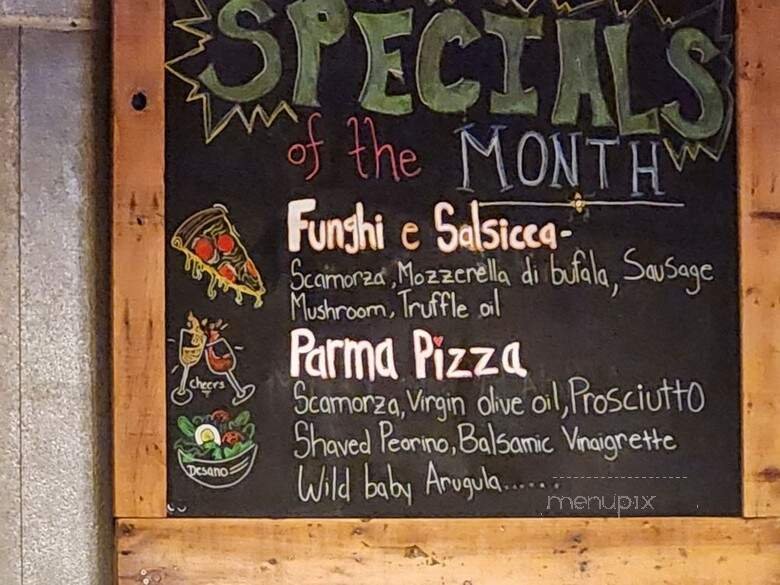 SPECIALS
of the MONTH
Funghi e Salsicca-
Scamorza, Mozzerella di bufala, Sausage
Mushroom, Truffle oil
Parma Pizza
cheers
Scamorza, Virgin olive oil, Prosciutto
Shaved Peorino, Balsamic Vinaigrette
Desano
Wild baby Arugula......
menupix